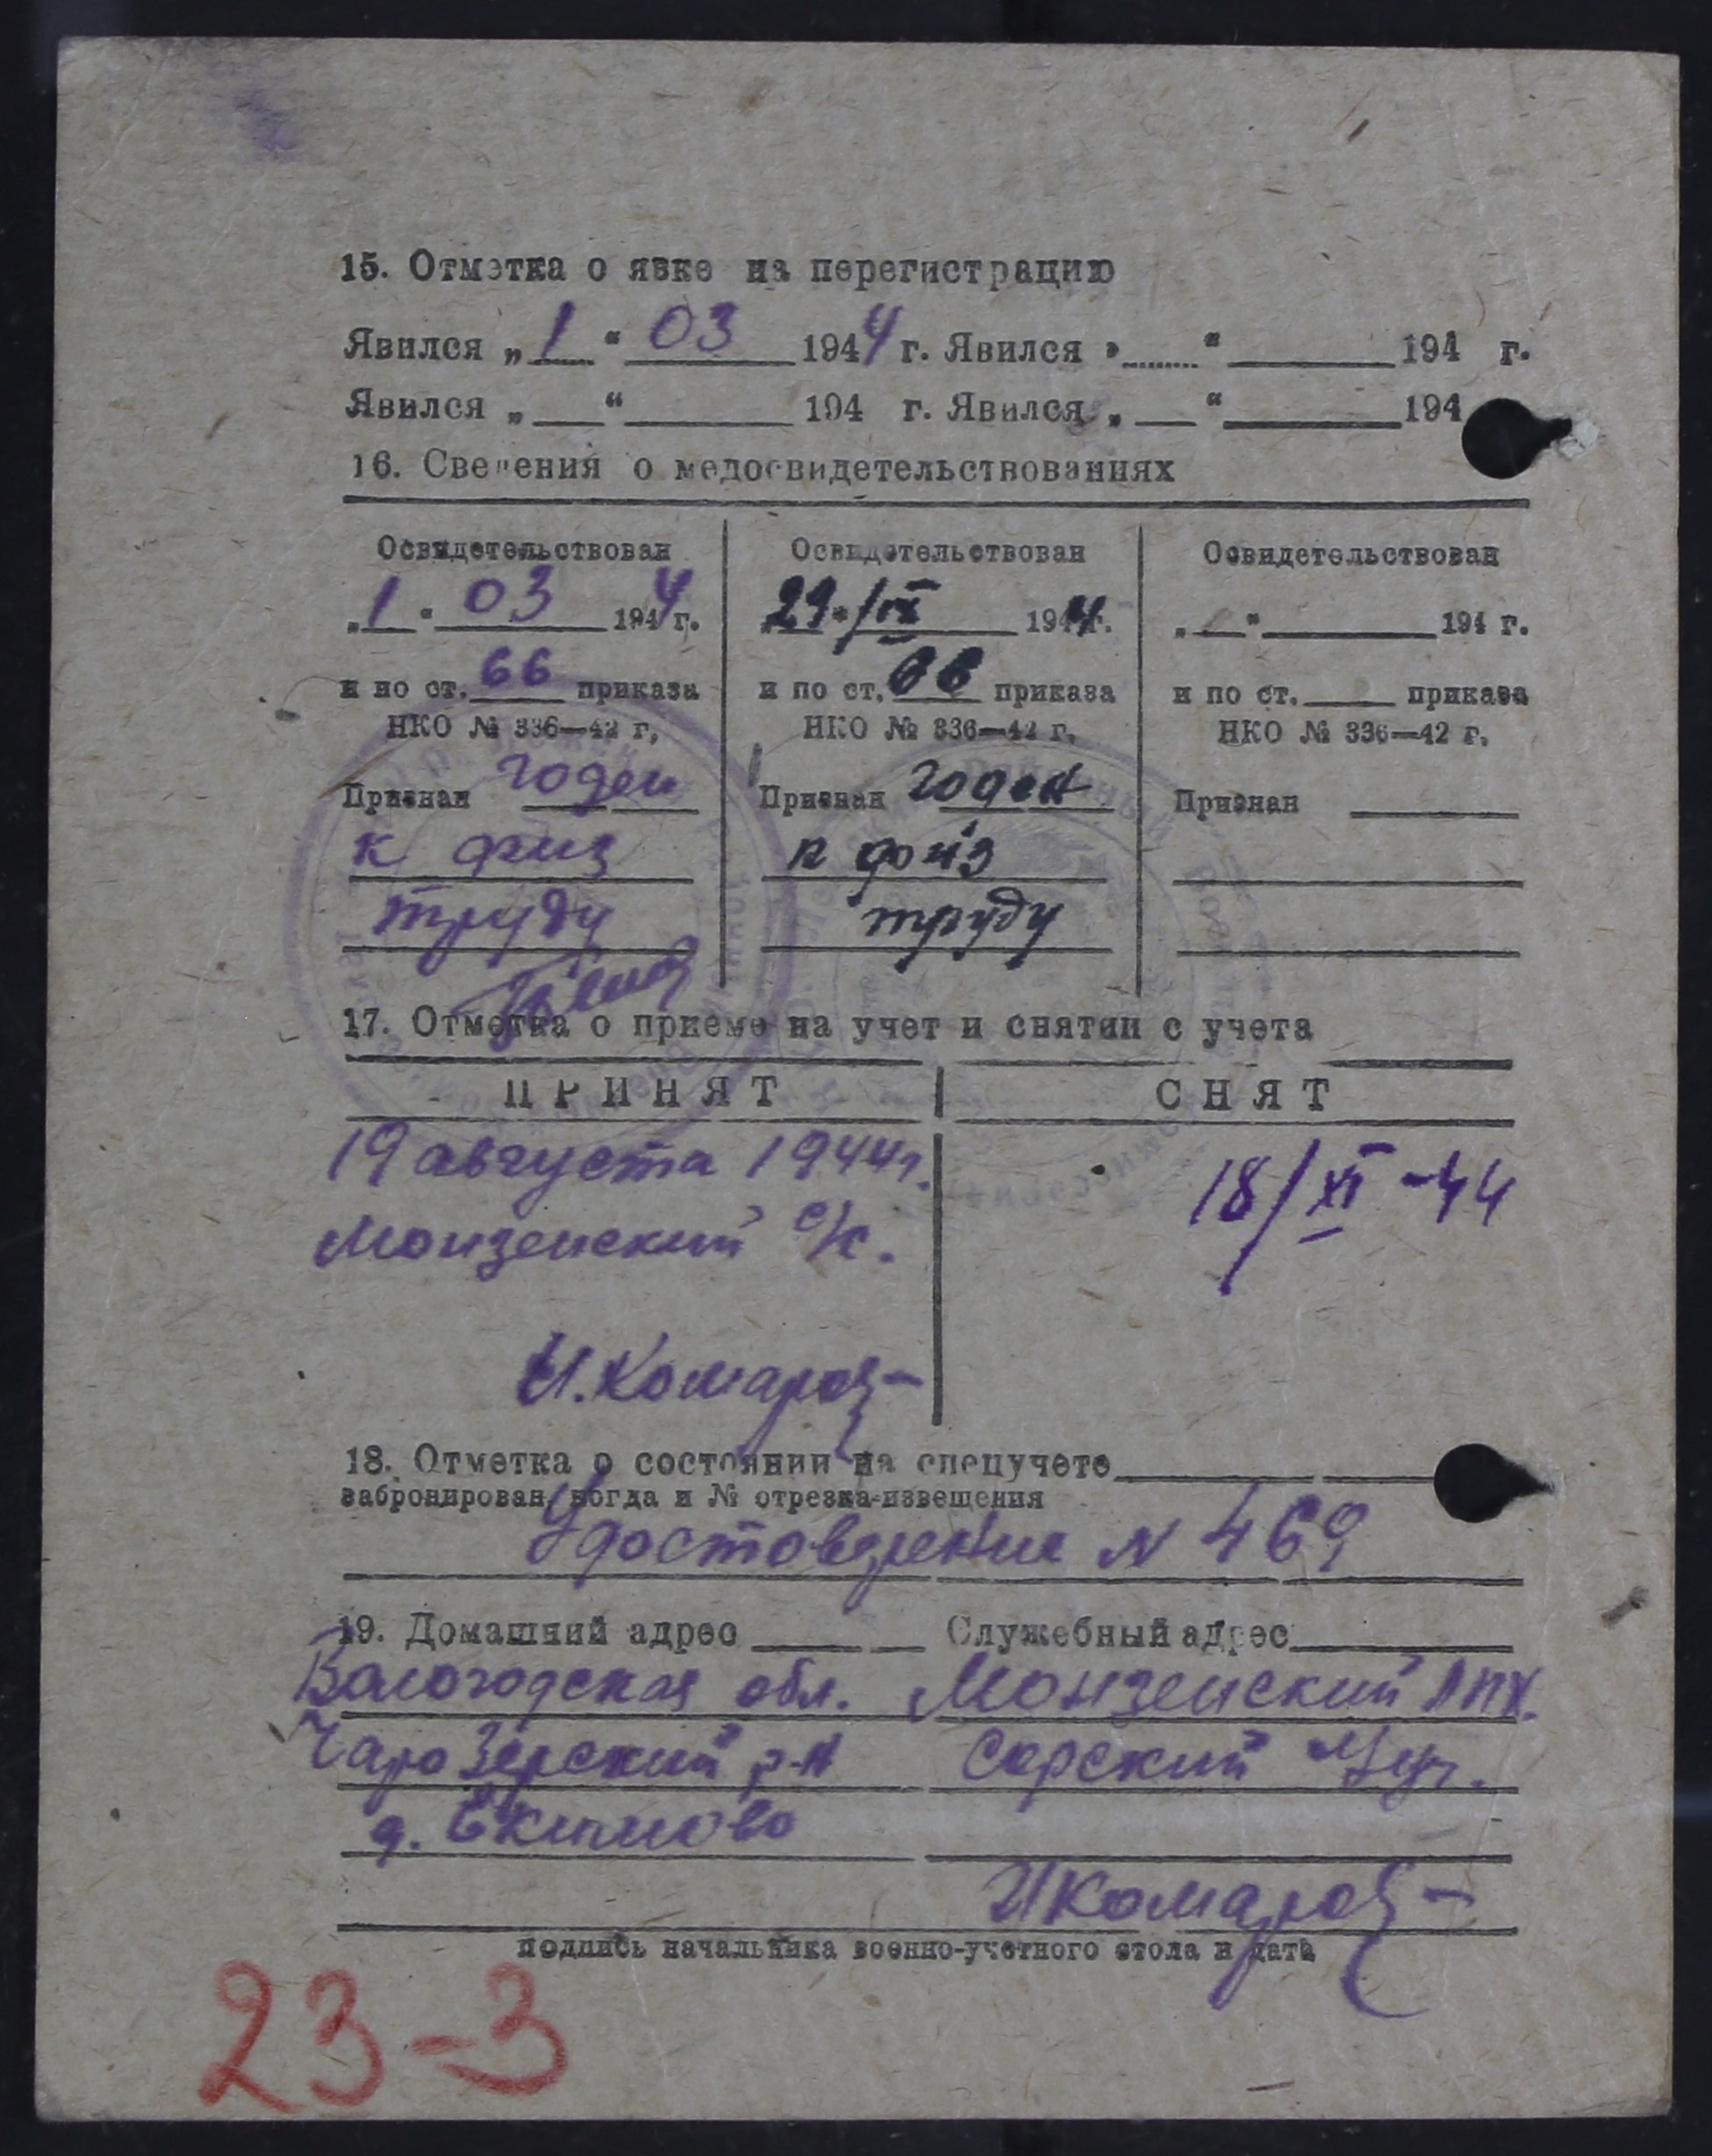 15. Отметка о явке на перегистрацию
Явился „1“ 03 1944 г. Явился „ “ 194 г.
Явился „ “ 194 г. Явился „ “ 194
16. Сведения о медосвидетельствованиях
Освидетельствован Освидетельствован Освидетельствован
„1“ 03 1944 г. „29“/IX 1944 г. „ “ 194 г.
и по ст. 66 приказа и по ст. 66 приказа и по ст. приказа
НКО № 336—42 г. НКО № 336—42 г. НКО № 336—42 г.
Признан годен Признан годен Признан
к физ к физ
труду труду
17. Отметка о приеме на учет и снятии с учета
ПРИНЯТ СНЯТ
19 августа 1944 г. 18/XI-44
Монзенский с/с.
И. Комаров
18. Отметка о состоянии на спецучете
забронирован, когда и № отрезка-извещения
Удостоверение N 469
19. Домашний адрес Служебный адрес
Вологодская обл. Монзенский ЛПХ.
Чарозерский р-н Сорский уч.
д. Екимово
И Комаров
подпись начальника военно-учетного стола и дата
23-3